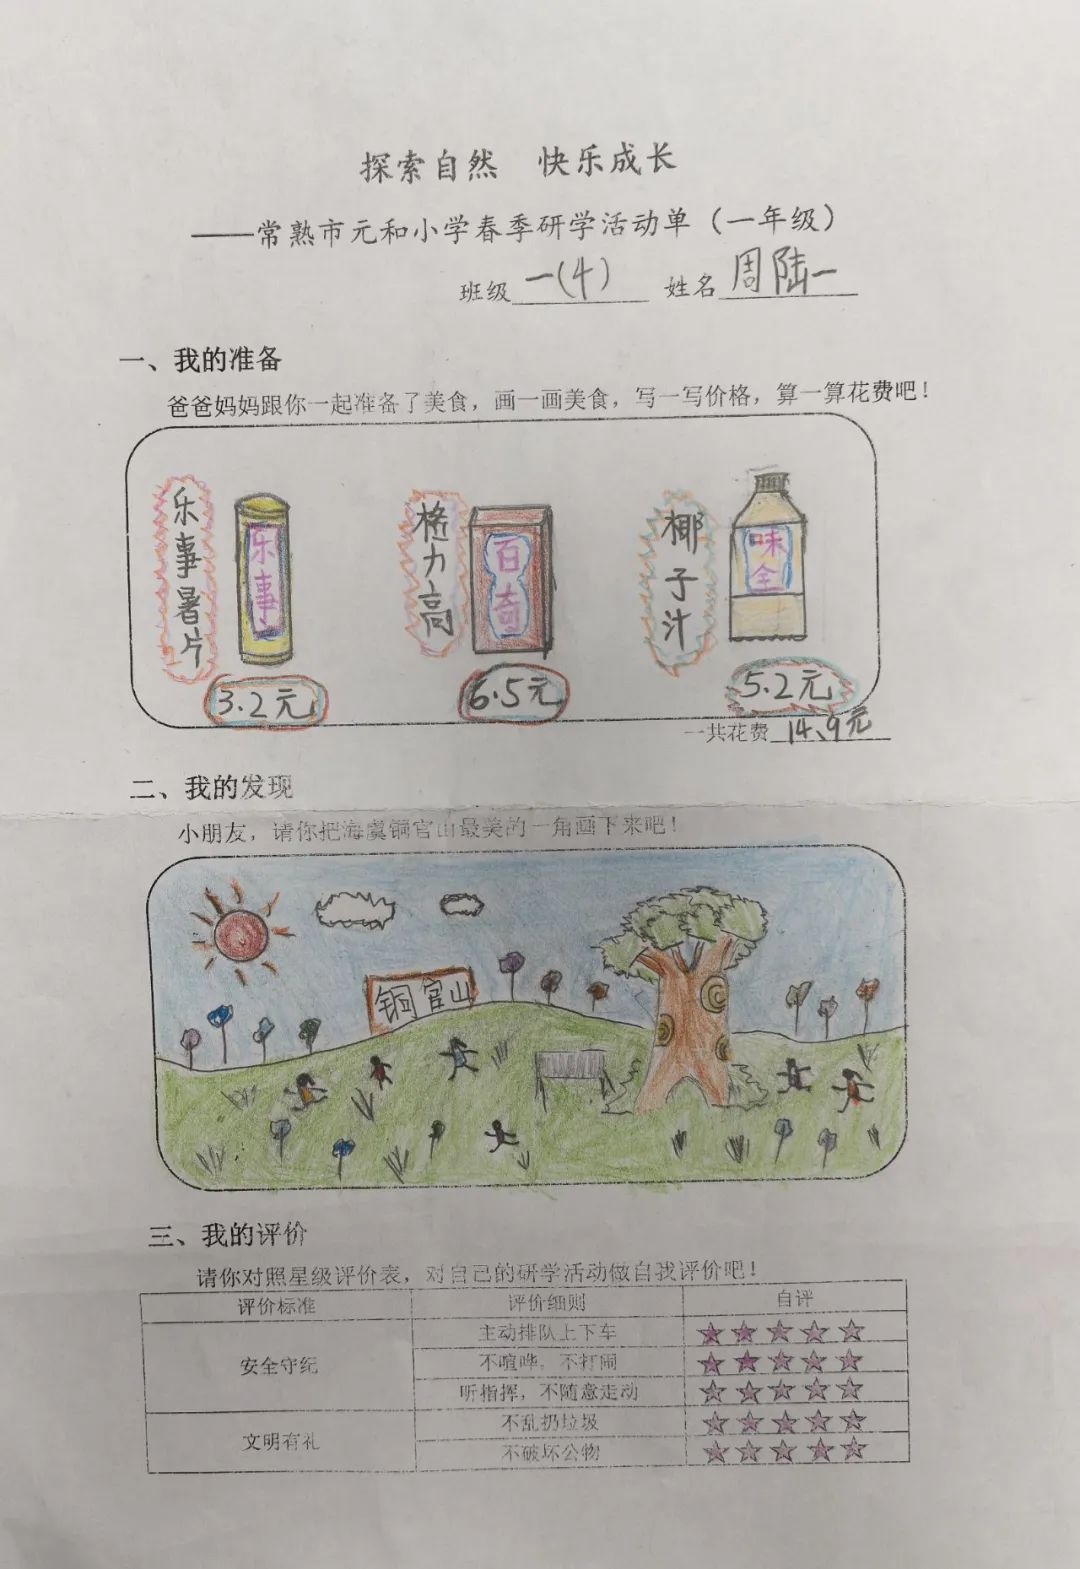 探索自然 快乐成长
——常熟市元和小学春季研学活动单（一年级）
班级 一(4) 姓名 周陆一
一、我的准备
爸爸妈妈跟你一起准备了美食，画一画美食，写一写价格，算一算花费吧！
乐事暑片
乐事
格力高
百奇
椰子汁
味全
3.2元
6.5元
5.2元
一共花费 14、9元
二、我的发现
小朋友，请你把海虞铜官山最美的一角画下来吧！
铜官山
三、我的评价
请你对照星级评价表，对自己的研学活动做自我评价吧！
评价标准 评价细则 自评
安全守纪
主动排队上下车 ★★★★★
不喧哗，不打闹 ★★★★★
听指挥，不随意走动 ★★★★★
文明有礼
不乱扔垃圾 ★★★★★
不破坏公物 ★★★★★